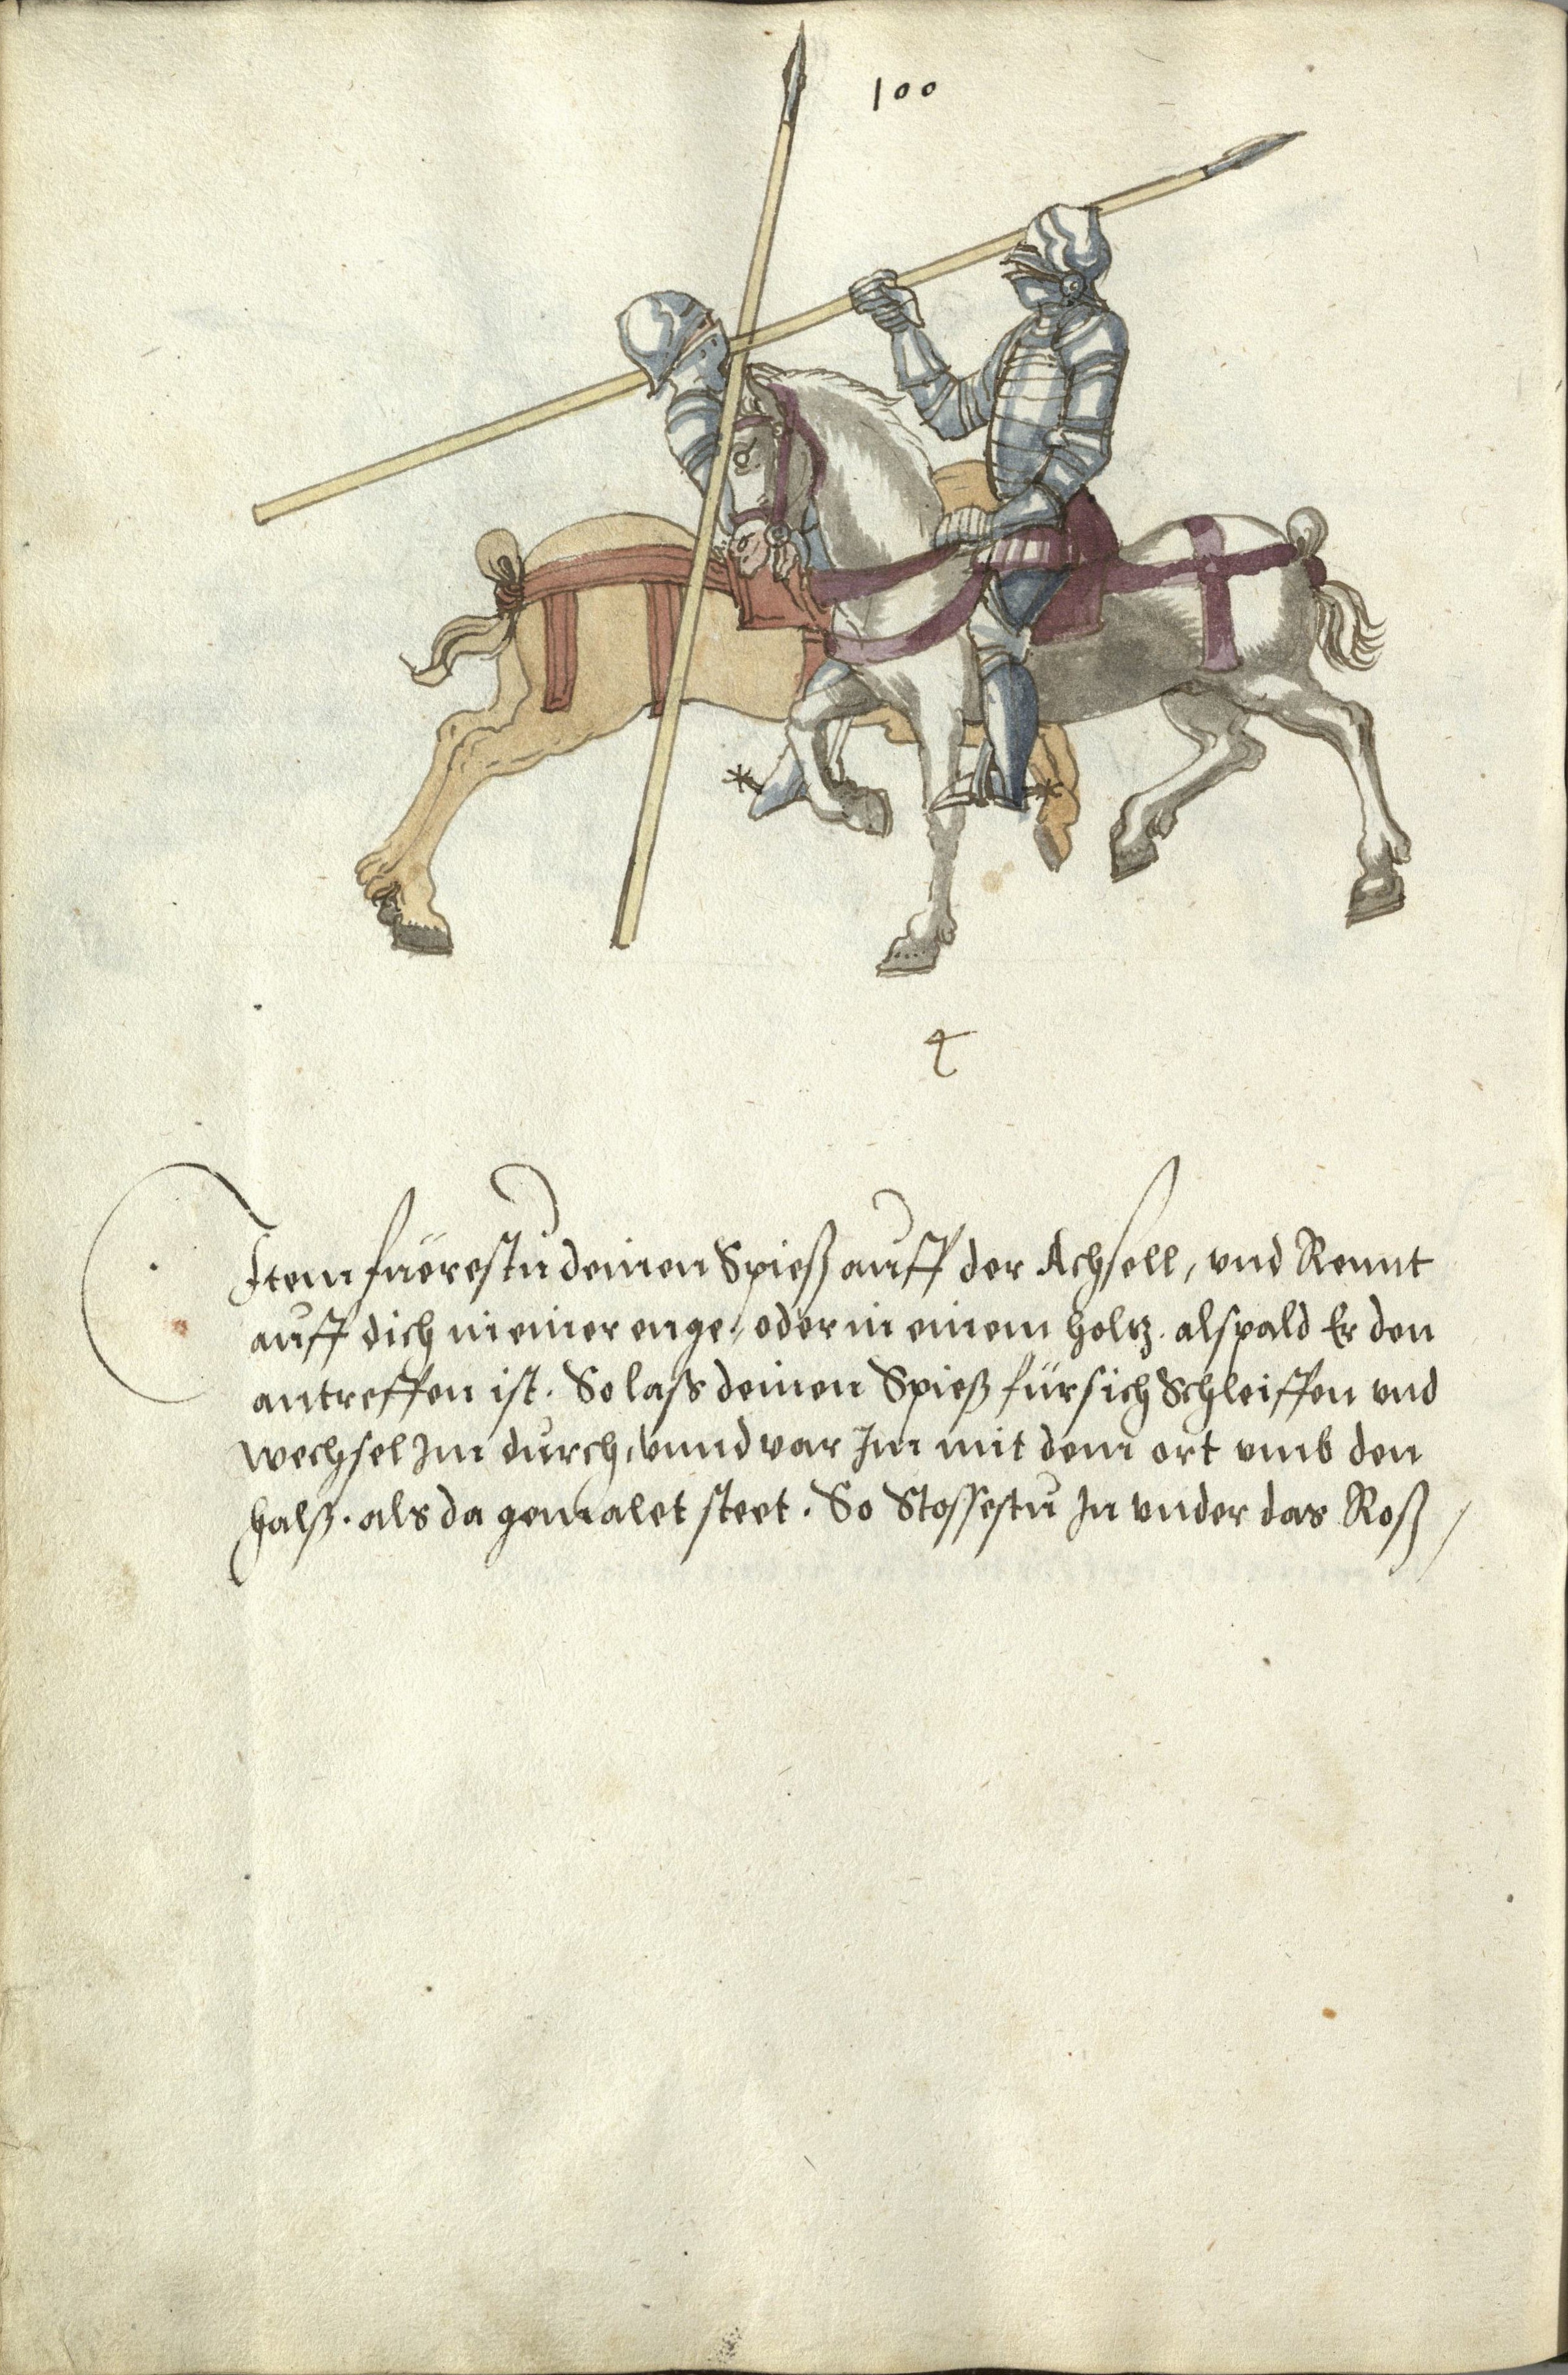 100
Item füerestu deinen Spieß auff der Achsell, vnd Rennt
auff dich in einer enge, oder in einem holtz. alspald Er den
antreffen ist. So lass deinen Spieß für sich Schleiffen vnd
wechsel Im durch, vnnd var Im mit dem ort vmb den
halß. als da gemalet steet. So Stossestu In vnder das Roß /